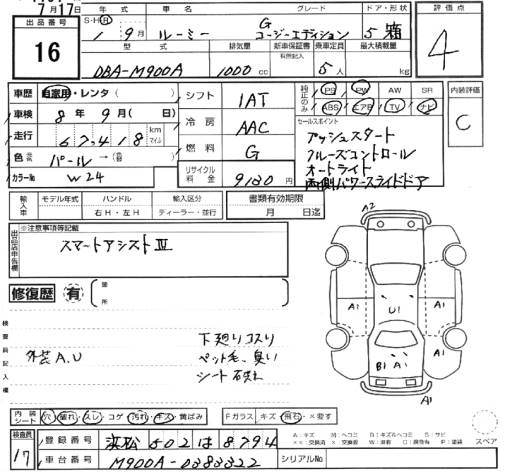 7月17日
出品番号
16
年式 車名 グレード ドア・形状
S・H R 1年 9月 ルーミー G コージーエディション 5 箱
型式 排気量 新車保証書 有無記入 乗車定員 最大積載量
DBA-M900A 1000 cc 5人 kg
評価点
4
車歴 自家用・レンタ( )
車検 8年 9月( 日)
走行 67418 km マイル
色 パール→
カラーNo W24
シフト IAT
冷房 AAC
燃料 G
リサイクル料金 9130 円
純正のみ
PS PW AW SR
ABS エアB TV ナビ
セールスポイント
プッシュスタート
クルーズコントロール
オートライト
両側パワースライドドア
内装評価
C
輸入車 モデル年式 ハンドル 輸入区分
年 右H・左H ディーラー・並行
書類有効期限
月 日迄
出品店申告欄
※注意事項等記載
スマートアシストⅢ
修復歴 有
箇所
検査員記入欄
外装A,U
下廻りコスリ
ペット毛、臭い
シート
A2
A1 U1 A1
B1 A1
A1
内装シート 穴 破れ スレ コゲ 汚れ キズ 黄ばみ
Fガラス キズ 飛石 ×要す
A:キズ
スペア
検査員
17
登録番号 浜松 502 は 8794
車台番号 M900A-0383322
シリアルNo